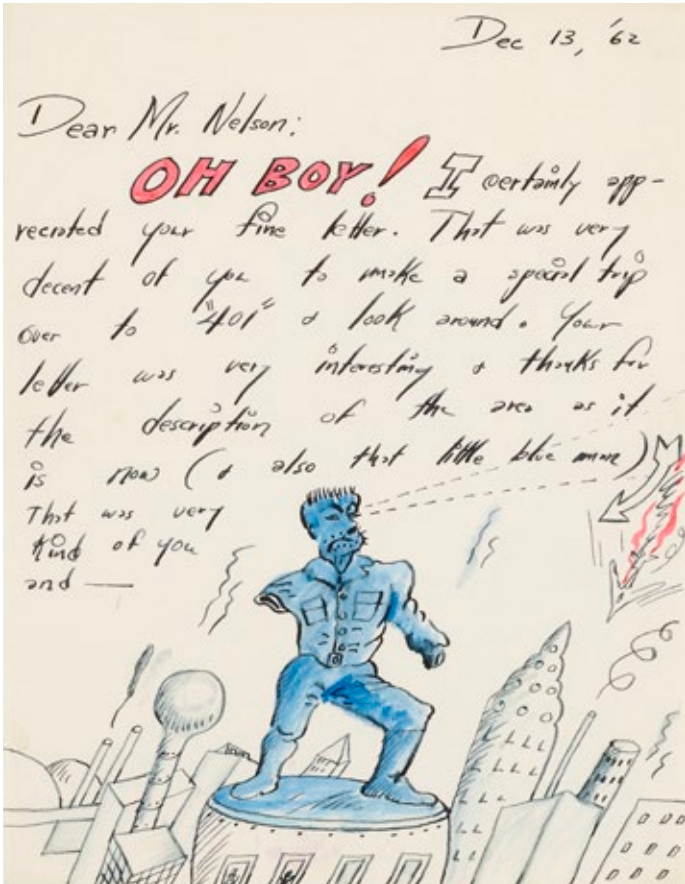 Dec 13, '62
Dear Mr. Nelson:
OH BOY! I certainly app-
reciated your fine letter. That was very
decent of you to make a special trip
over to "401" & look around. Your
letter was very interesting & thanks for
the description of the area as it
is now (& also that little blue man)
That was very
kind of you
and —